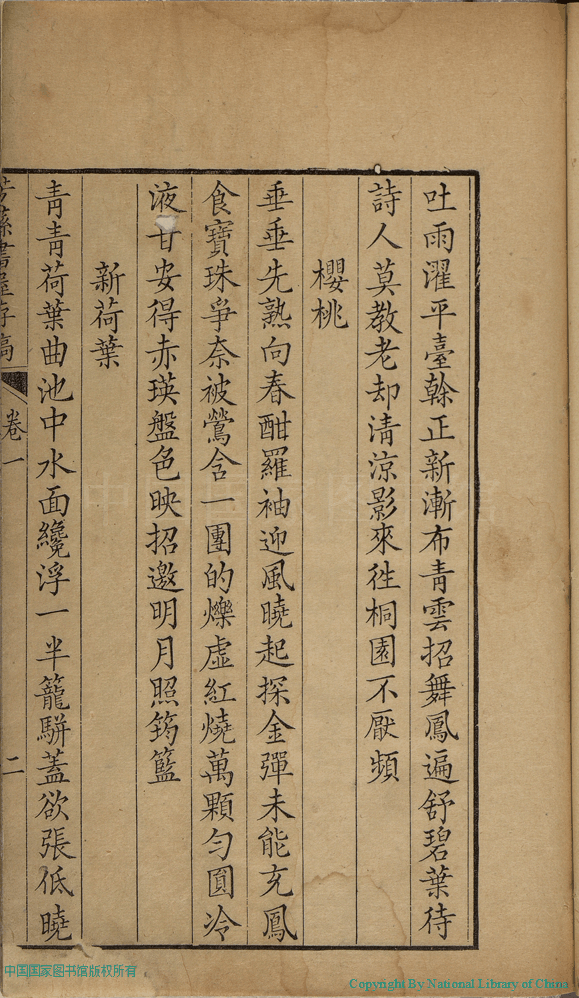 吐雨濯平臺榦正新漸布青雲招舞鳳遍舒碧葉待
詩人莫教老却清涼影來往桐園不厭頻
櫻桃
垂垂先熟向春酣羅袖迎風曉起探金彈未能充鳳
食寶珠爭奈被鶯含一團的爍虛紅燒萬顆勻圓冷
液甘安得赤瑛盤色映招邀明月照筠籃
新荷葉
青青荷葉曲池中水面纔浮一半籠駢蓋欲張低曉
書屋存稿
卷一
二
中国国家图书馆版权所有
Copyright By National Library of China